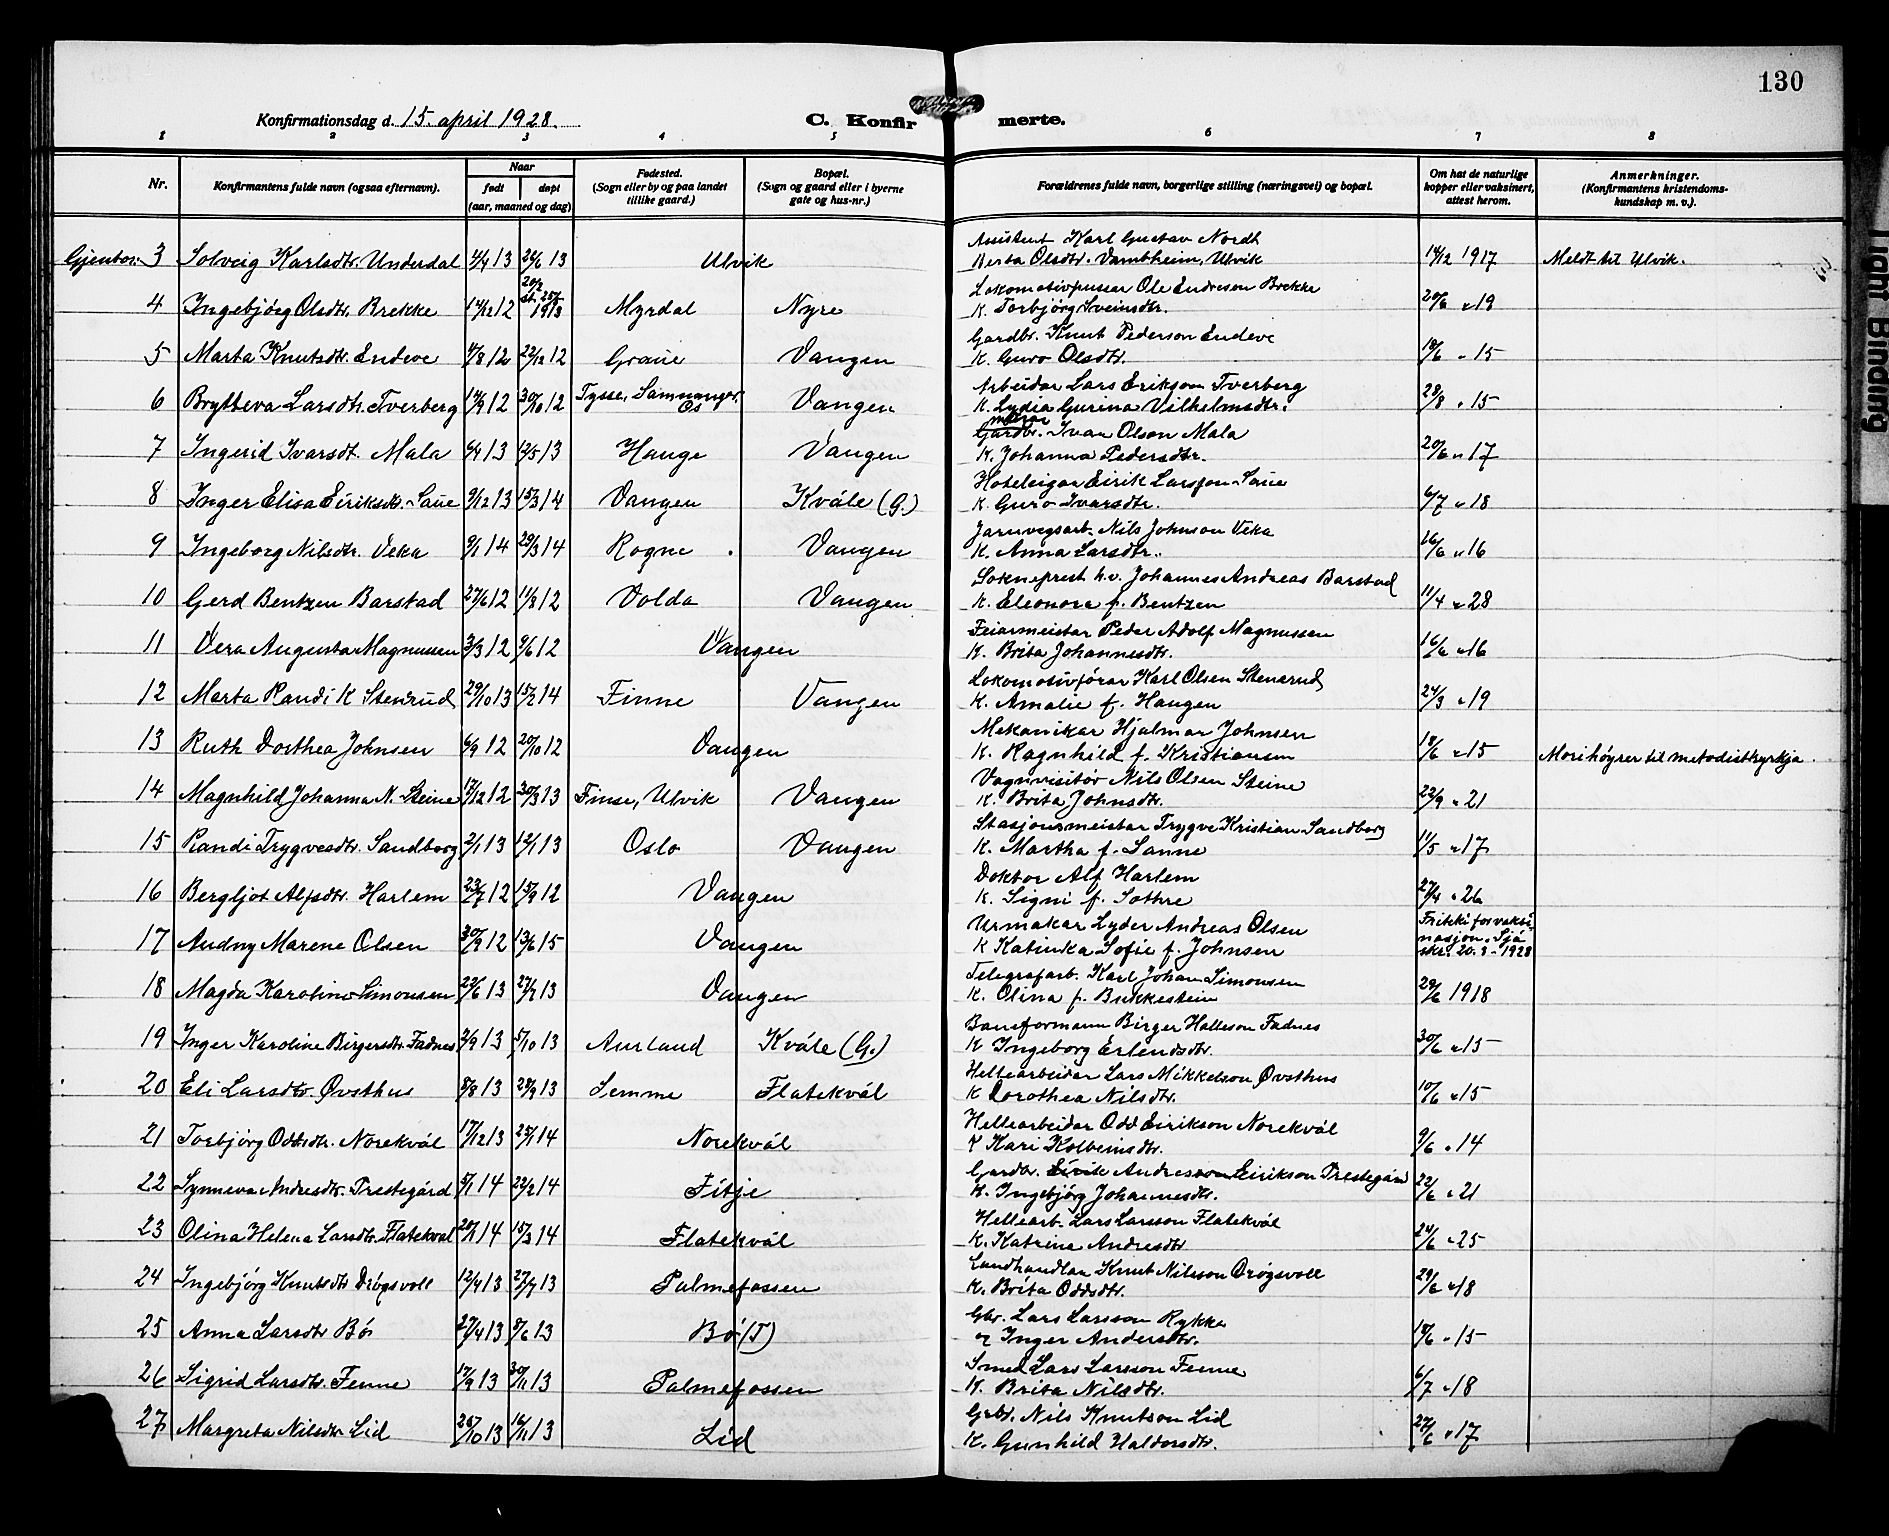 130
Konfirmationsdag d. 15. april 1928.
C. Konfirmerte.
1 2 3 4 5 6 7 8
Nr. Konfirmantens fulde navn (ogsaa efternavn). Naar født døpt (aar, maaned og dag) Fødested. (Sogn eller by og paa landet tillike gaard.) Bopæl. (Sogn og gaard eller i byerne gate og hus-nr.) Forældrenes fulde navn, borgerlige stilling (næringsvei) og bopæl. Om hat de naturlige kopper eller vaksinert, attest herom. Anmerkninger. (Konfirmantens kristendoms-kundskap m. v.).
Gjentor 3 Solveig Karlsdtr. Underdal 4/4 13 22/6 13 Ulvik Assistent Karl Gustav Nordt 14/12 1917 Meldt til Ulvik.
Berta Olsdtr. Vambheim, Ulvik
4 Ingebjørg Olsdtr. Brekke 14/12 12 20/2 st. 25/5 1913 Myrdal Nyre Lokomotivpussar Ole Endreson Brekke 20/6 " 19
K. Torbjørg Sveinsdtr.
5 Marta Knutsdtr. Endeve 4/8 12 22/12 12 Graue Vangen Gardbr. Knut Pederson Endeve 18/6 " 15
K. Guro Olsdtr.
6 Brytteva Larsdtr. Tverberg 14/9 12 30/10 12 Tysse, Samnanger, Os Vangen Arbeidar Lars Erikson Tverberg 28/8 " 15
K. Lydia Gurina Vilhelmsdtr.
7 Ingerid Ivarsdt. Mala 4/4 13 12/5 13 Hauge Vangen Gardbr. Ivar Olson Mala 20/6 " 17
K. Johanna Pedersdtr.
8 Inger Elisa Eiriksdtr. Saue 9/12 13 15/3 14 Vangen Kvåle (G.) Hoteleigar Eirik Larsson Saue 6/7 " 18
K. Guro Ivarsdtr.
9 Ingeborg Nilsdtr. Veka 9/1 14 29/3 14 Rogne Vangen Jarnvegsarb. Nils Johnson Veka 26/6 " 16
K. Anna Larsdtr.
10 Gerd Bentzen Barstad 27/6 12 11/8 12 Volda Vangen Sokneprest h.v. Johannes Andreas Barstad 11/4 " 28
K. Eleonora f. Bentzen
11 Vera Augusta Magnussen 3/3 12 9/6 12 Vangen Feiarmeistar Peder Adolf Magnussen 16/6 " 16
K. Brita Johannesdtr.
12 Marta Randi K Stenrud 29/10 13 15/2 14 Finne Vangen Lokomotivførar Karl Olsen Stenerud 24/3 " 19
K. Amalie f. Haugen
13 Ruth Dorthea Johnsen 6/9 12 20/10 12 Vangen Mekanikar Hjalmar Johnsen 18/6 " 15 Mori høyrer til metodistkyrkja.
K. Ragnhild f. Kristiansen
14 Magnhild Johanna N. Steine 17/12 12 30/3 13 Finse, Ulvik Vangen Vognvisitør Nils Olsen Steine 22/9 " 21
K. Brita Johnsdtr.
15 Randi Trygvesdtr. Sandborg 2/1 13 12/1 13 Oslo Vangen Stasjonsmeistar Trygve Kristian Sandborg 11/5 " 17
K. Martha f. Sanne
16 Bergljot Alfsdtr. Harlem 23/7 12 15/9 12 Vangen Doktor Alf Harlem 27/4 " 26
K. Signi f. Sothre
17 Audny Marene Olsen 30/9 12 13/6 15 Vangen Urmakar Lyder Andreas Olsen Friteki for vaksinasjon. Sjå skr. 20.3-1928
K Katinka Sofie f. Johnsen
18 Magda Karoline Simonsen 22/6 13 27/7 13 Vangen Telegrafarb. Karl Johan Simonsen 29/6 1918
K. Olina f. Bukkestein
19 Inger Karoline Birgersdtr. Fadnes 2/9 13 5/10 13 Aurland Kvåle (G.) Baneformann Birger Halleson Fadnes 30/6 " 15
K Ingeborg Erlendsdtr.
20 Eli Larsdtr. Øvsthus 8/8 13 28/9 13 Semme Flatekvål Hellearbeidar Lars Mikkelson Øvsthus 10/6 " 15
K Dorothea Nilsdtr.
21 Torbjørg Oddsdtr. Norekvål 17/12 13 25/1 14 Norekvål Hellearbeidar Odd Eirikson Norekvål 9/6 " 14
K Kari Kolbeinsdtr.
22 Synneva Andresdtr. Prestegård 5/1 14 22/2 14 Fitje Gardbr. Eirik Andresson Eirikson Prestegård 22/6 " 21
K. Ingebjørg Johannesdtr.
23 Olina Helena Larsdtr. Flatekvål 20/1 14 15/3 14 Flatekvål Hellearb. Lars Larsson Flatekvål 24/6 " 25
K. Katrina Andresdtr
24 Ingebjørg Knutsdtr Drøgsvoll 12/4 13 27/7 13 Palmefossen Landhandlar Knut Nilsson Drøgsvoll 29/6 " 18
K. Brita Oddsdtr.
25 Anna Larsdtr Bø 27/4 13 8/6 13 Bø (T) Gbr. Lars Larsson Rykke 18/6 " 15
og Inger Andersdtr.
26 Sigrid Larsdtr. Fenne 17/9 13 30/11 13 Palmefossen Smed Lars Larsson Fenne 6/7 " 18
K. Brita Nilsdtr.
27 Margreta Nilsdtr Lid 26/10 13 16/11 13 Lid Gbr. Nils Knutson Lid 27/6 " 17
K. Gunhild Haldorsdtr.
Tight Binding